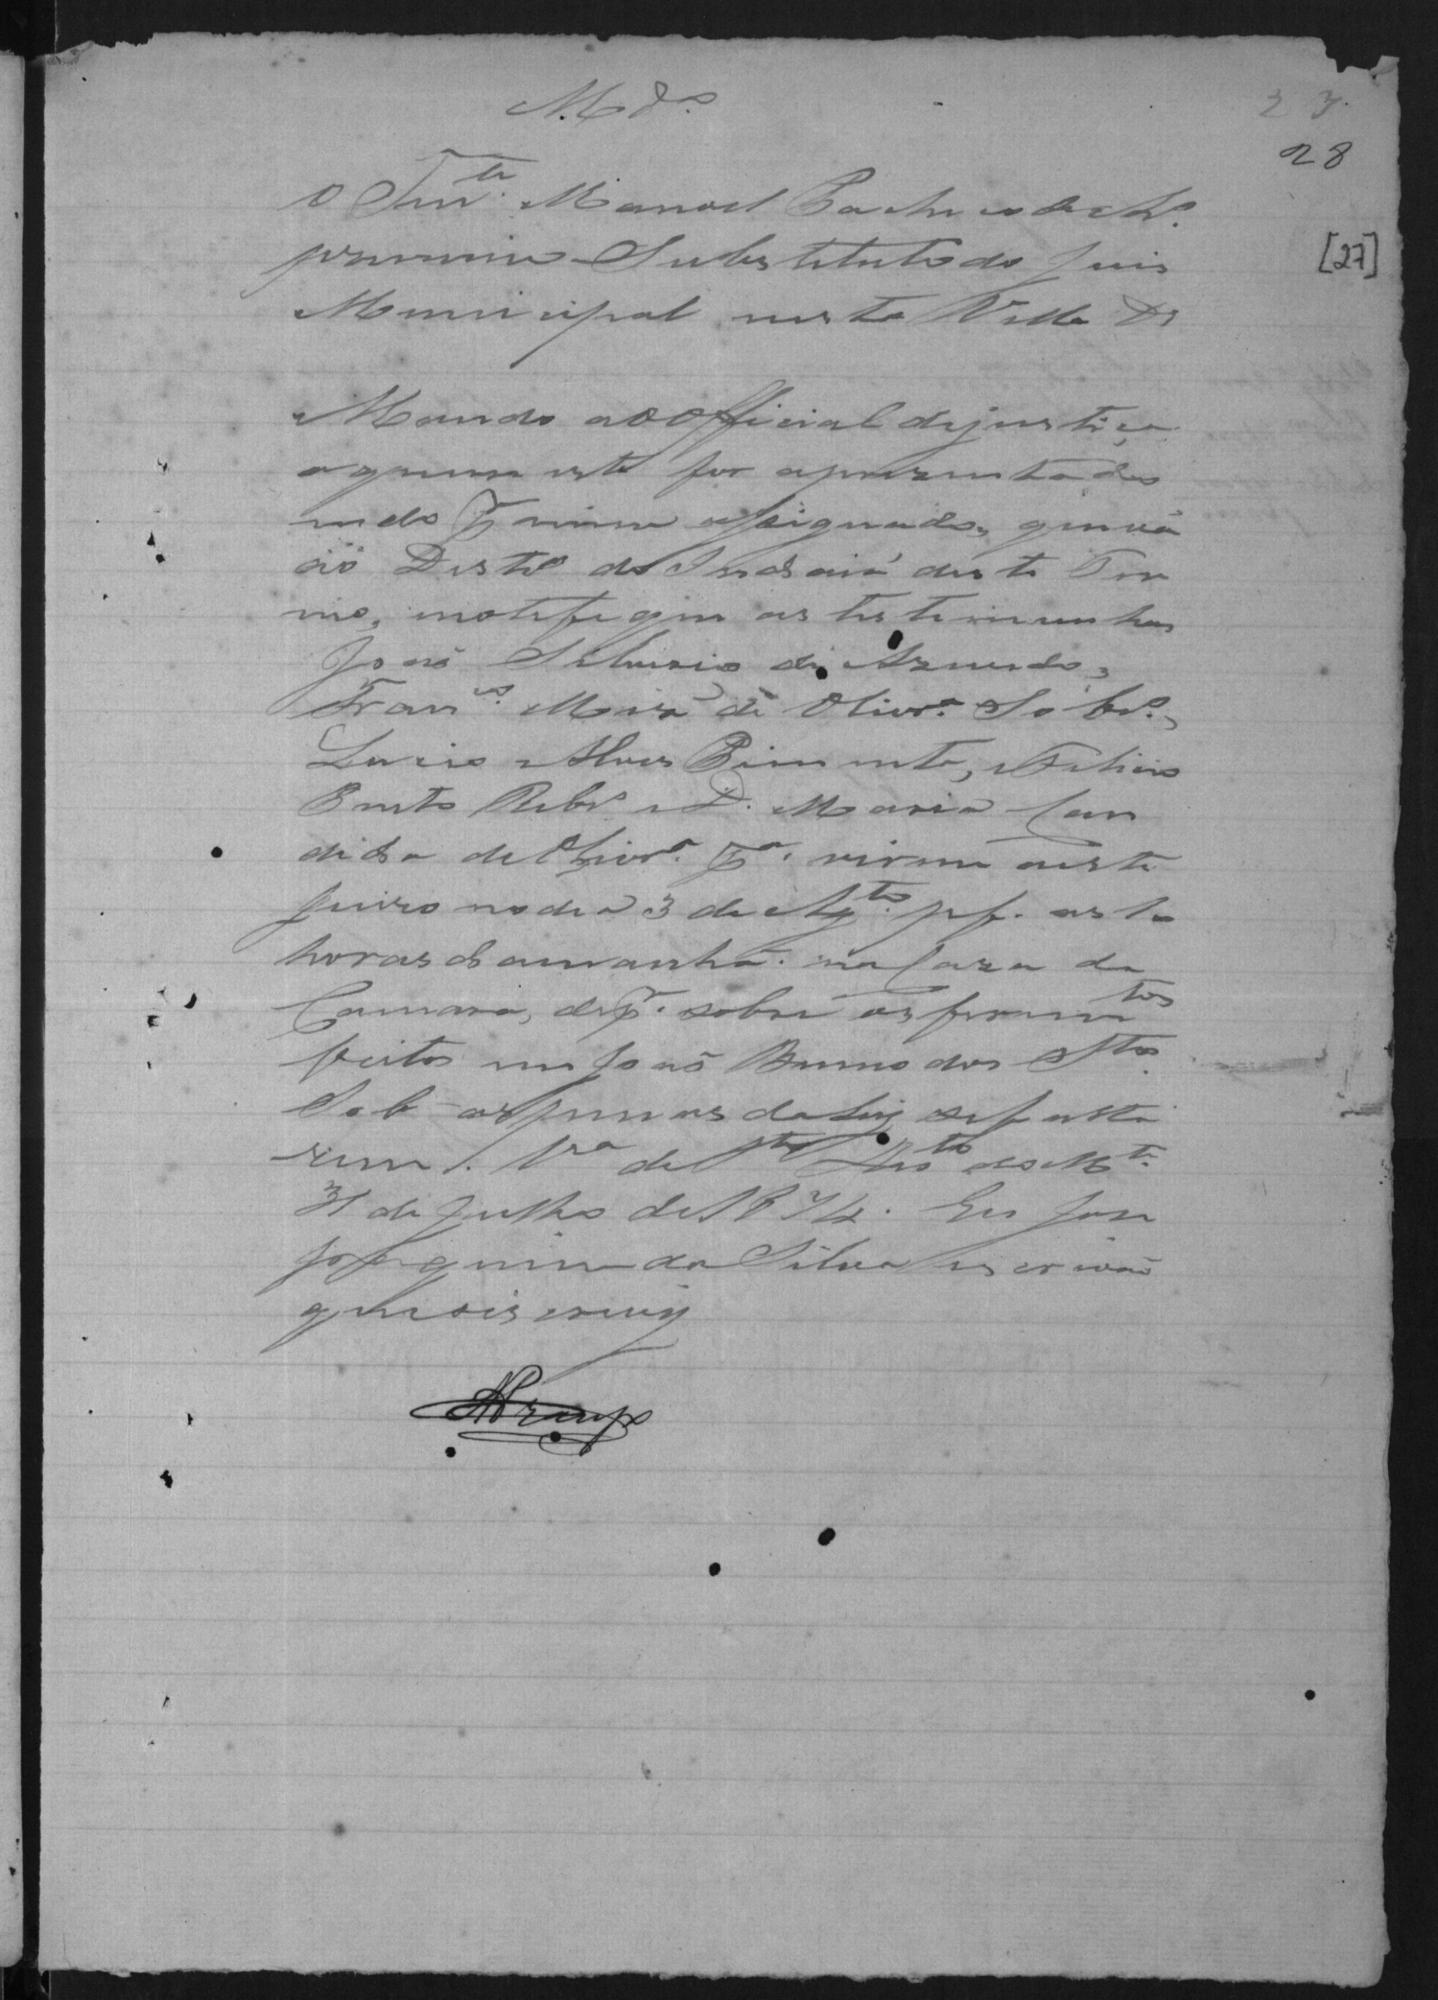 M.do
27
28
O Ten.te Manoel Pacheco de Ar.o
primeiro Substituto do Juis
[27]
Municipal nesta Villa Da
Mando ao Official de justiça
a quem este for apresentado
indo p.r mim assignado, que vá
aó Destr.o do Indaiá deste Ter
mo, e notefique as testemunhas
João Silverio de Azevedo,
Fran.co Mor.a de Oliver.a Sobr.o,
Lucio Alves Pimenta, Felicio
Bento Rib.ro e D. Maria Can
dida de Oliver.a p.a virem neste
juizo no dia 3 de Ag.to p.f. as 10
horas da manhã. na Caza da
Camara, dep.r sobre os ferim.tos
feitos em João Bueno dos S.tos
Sob as penas da Lei, se faltá
rem. V.a de S.to Ant.o do M.te
31 de Julho de 1874. Eu José
Joaquim da Silva escrivão
que o iscrevi